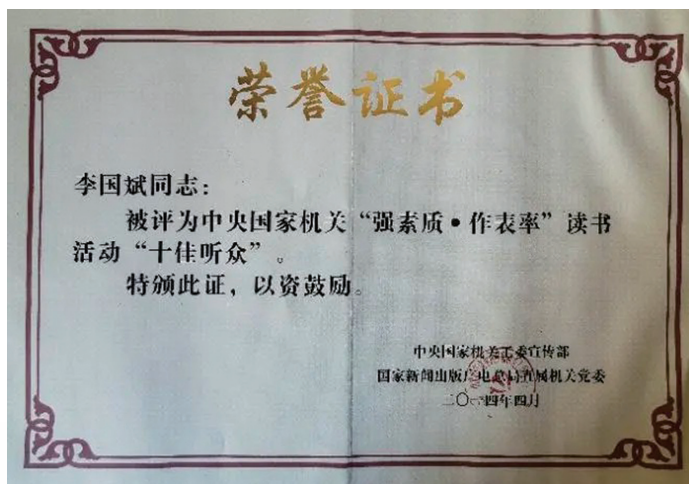 荣誉证书
李国斌同志：
被评为中央国家机关“强素质·作表率”读书
活动“十佳听众”。
特颁此证，以资鼓励。
中央国家机关工委宣传部
国家新闻出版广电总局直属机关党委
二〇一四年四月